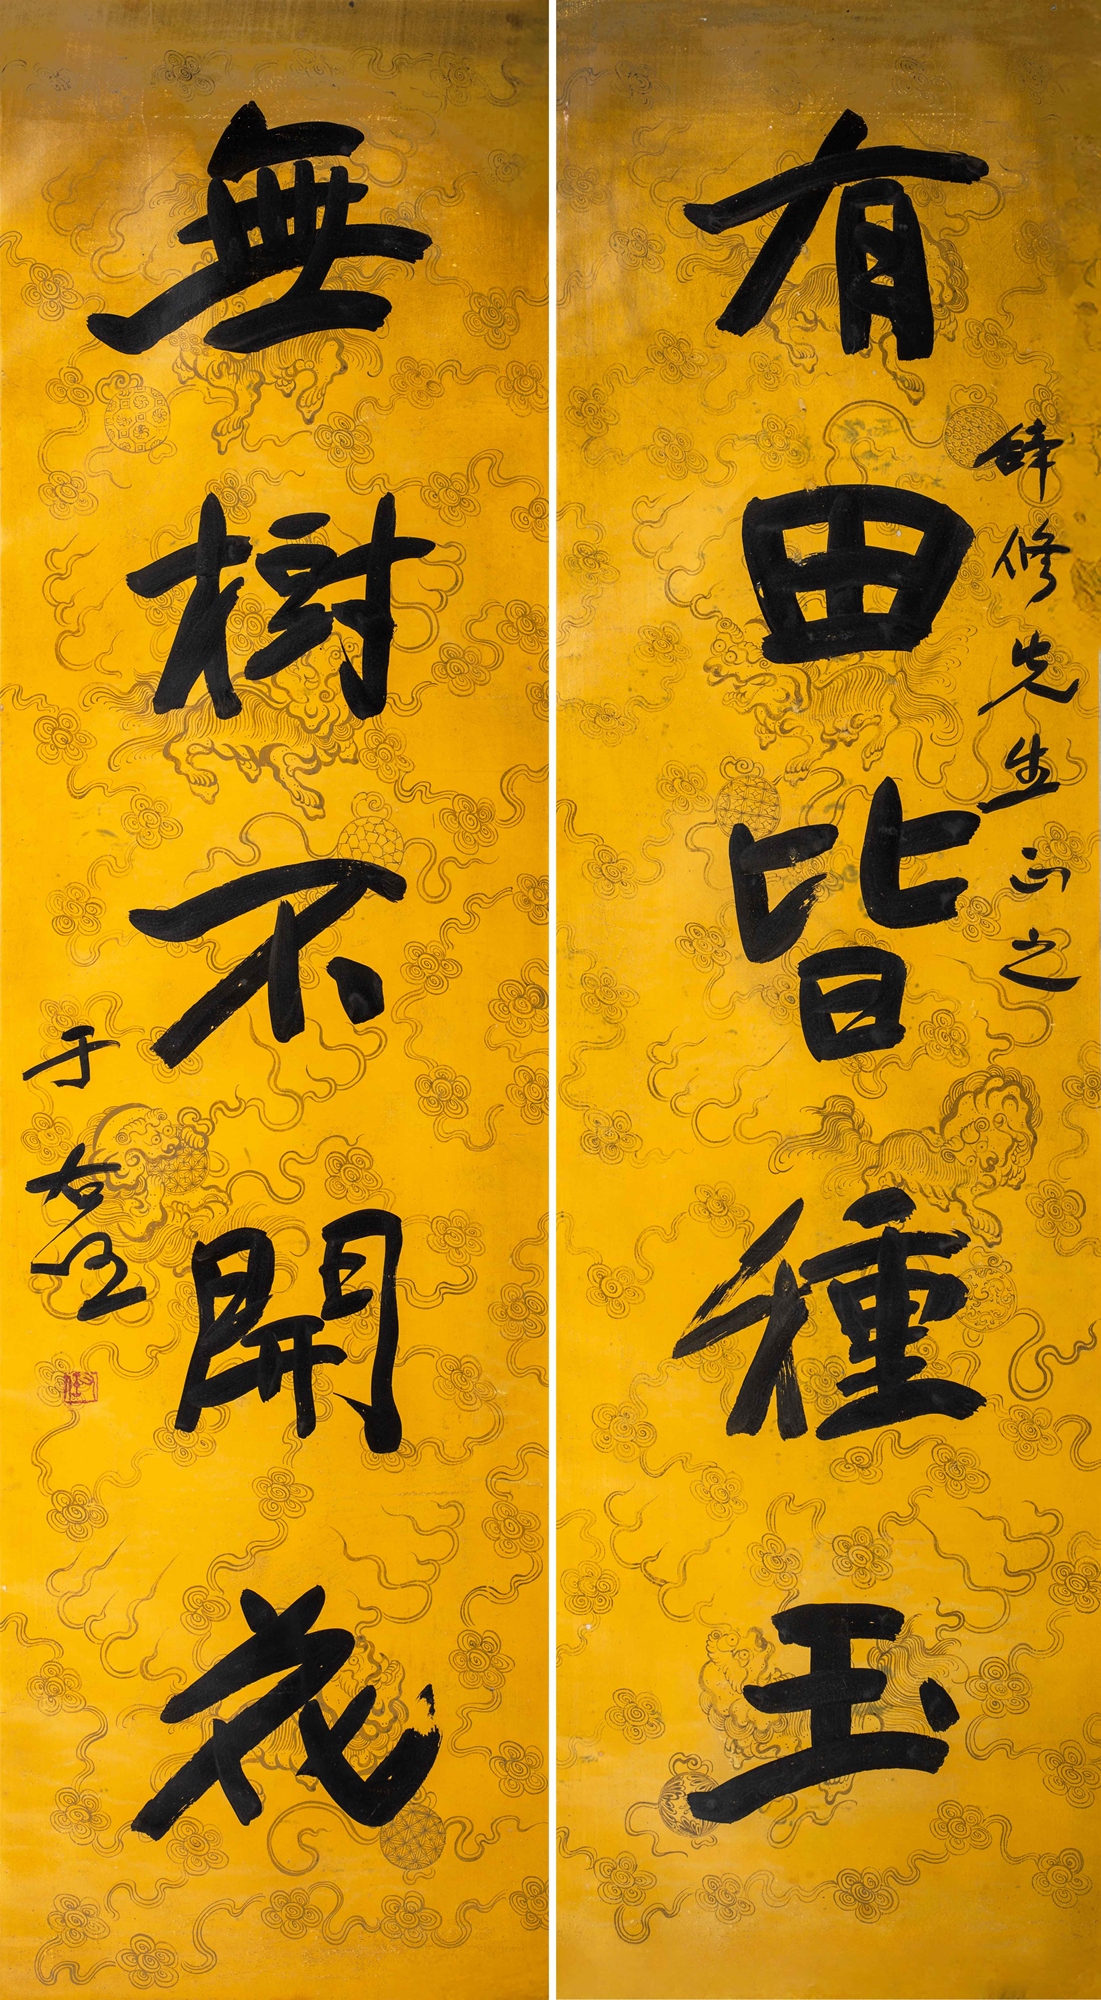 有田皆種玉
修先生正之
無樹不開花
于右任